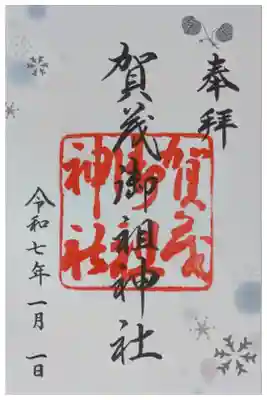 奉拝
賀茂御祖神社
賀茂
御祖
神社
令和七年一月一日